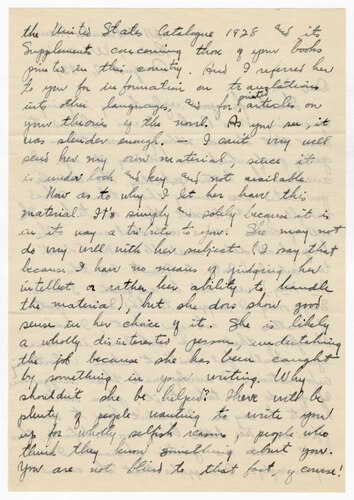 the United States Catalogue 1928 and its
Supplements concerning those of your books
printed in this country. And I referred her
to you for information on translations
into other languages, and for printed articles on
your theories of the novel. As you see, it
was slender enough. — I can't very well
send her my own material, since it
is under lock and key and not available.
Now as to why I let her have this
material. It's simply and solely because it is
in its way a tribute to you. She may not
do very well with her subject (I say that
because I have no means of judging her
intellect or rather, her ability to handle
the material), but she does show good
sense in her choice of it. She is likely
a wholly disinterested person, undertaking
the job because she has been caught
by something in your writing. Why
shouldn't she be helped? There will be
plenty of people wanting to write you
up for wholly selfish reasons, people who
think they know something about you.
You are not blind to that fact, of course!